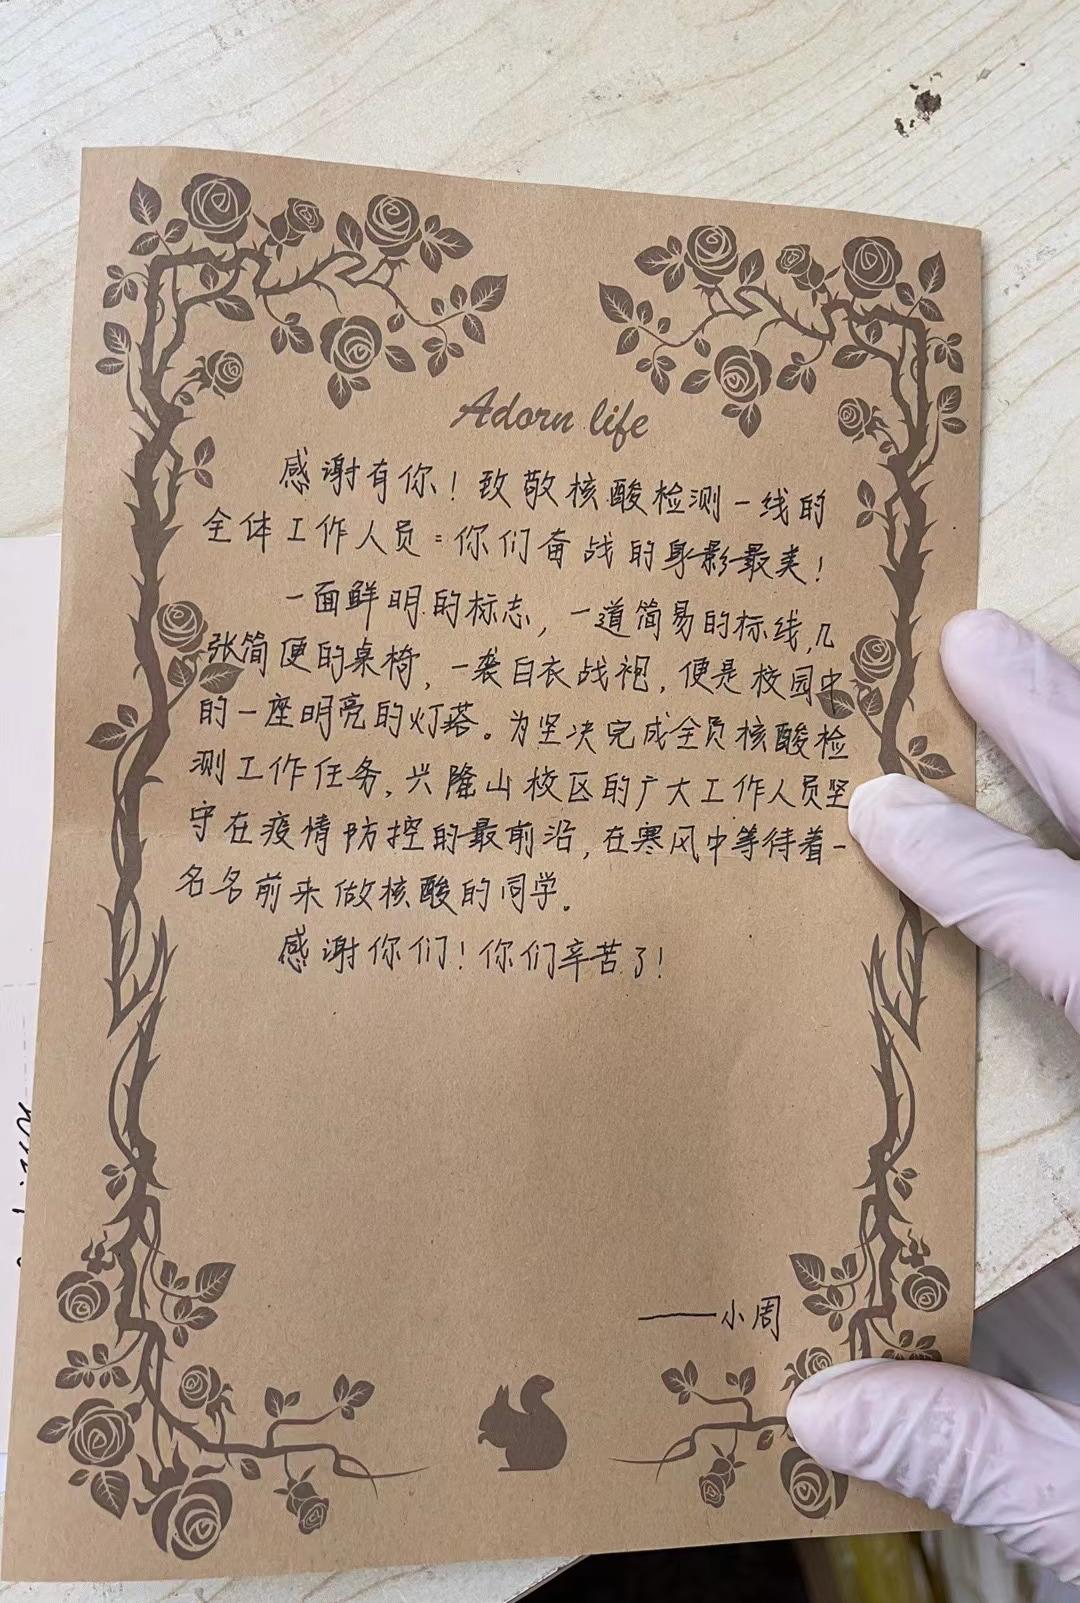 Adorn life
感谢有你！致敬核酸检测一线的
全体工作人员：你们奋战的身影最美！
一面鲜明的标志，一道简易的标线，几
张简便的桌椅，一袭白衣战袍，便是校园中
的一座明亮的灯塔。为坚决完成全员核酸检
测工作任务，兴隆山校区的广大工作人员坚
守在疫情防控的最前沿，在寒风中等待着一
名名前来做核酸的同学。
感谢你们！你们辛苦了！
——小周